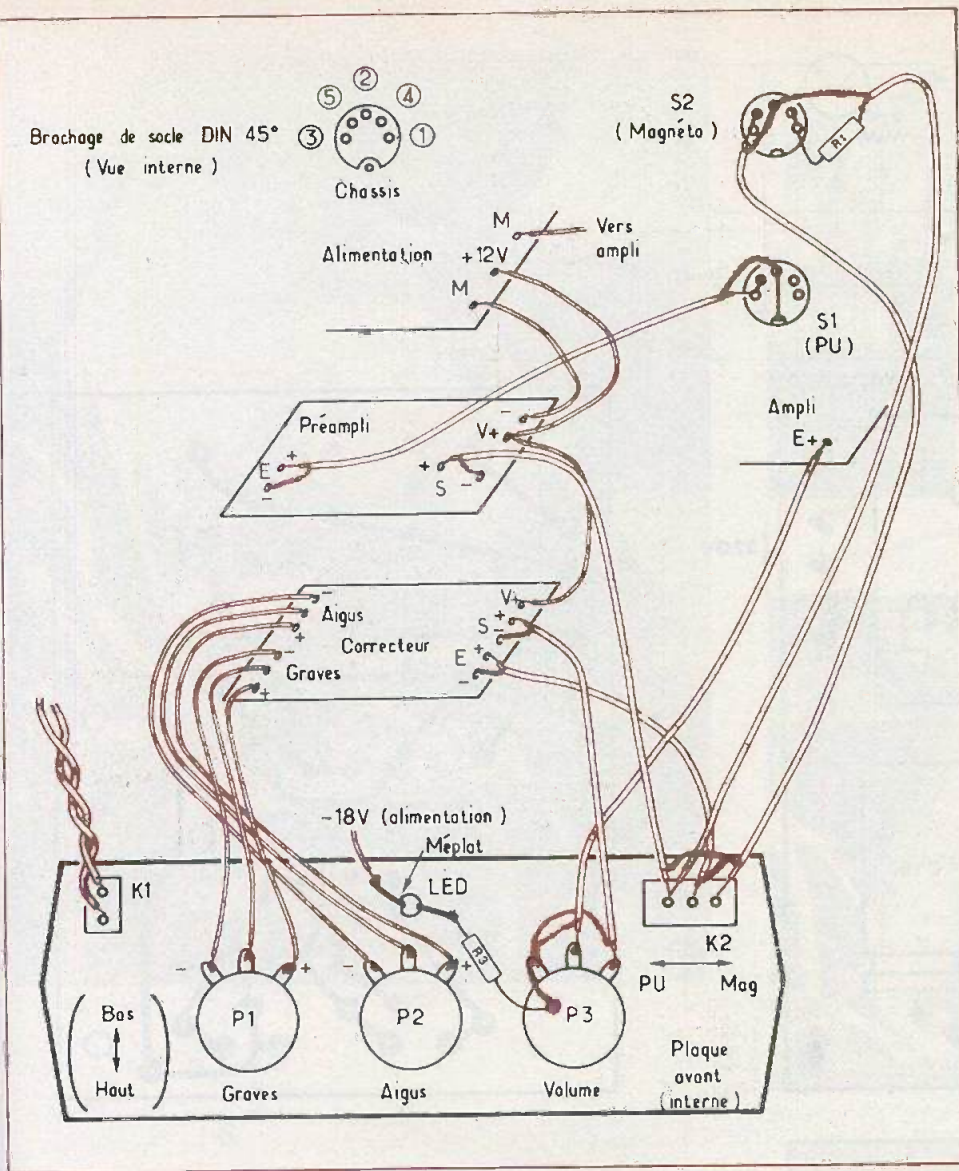 ②
⑤ ④
Brochage de socle DIN 45° ③ ①
( Vue interne )
Chassis
S2
( Magnéto )
R1
M
Vers
ampli
Alimentation
+12V
M
S1
(PU)
Préampli
-
V+
E
+
-
+
S
-
Ampli
E+
-
Aigus
+
Correcteur
-
Graves
+
V+
+
S
-
+
E
-
-18V (alimentation)
Méplat
LED
K1
R3
K2
PU Mag
- +
P1
- +
P2
P3
Bas
Haut
Graves
Aigus
Volume
Plaque
avant
(interne)